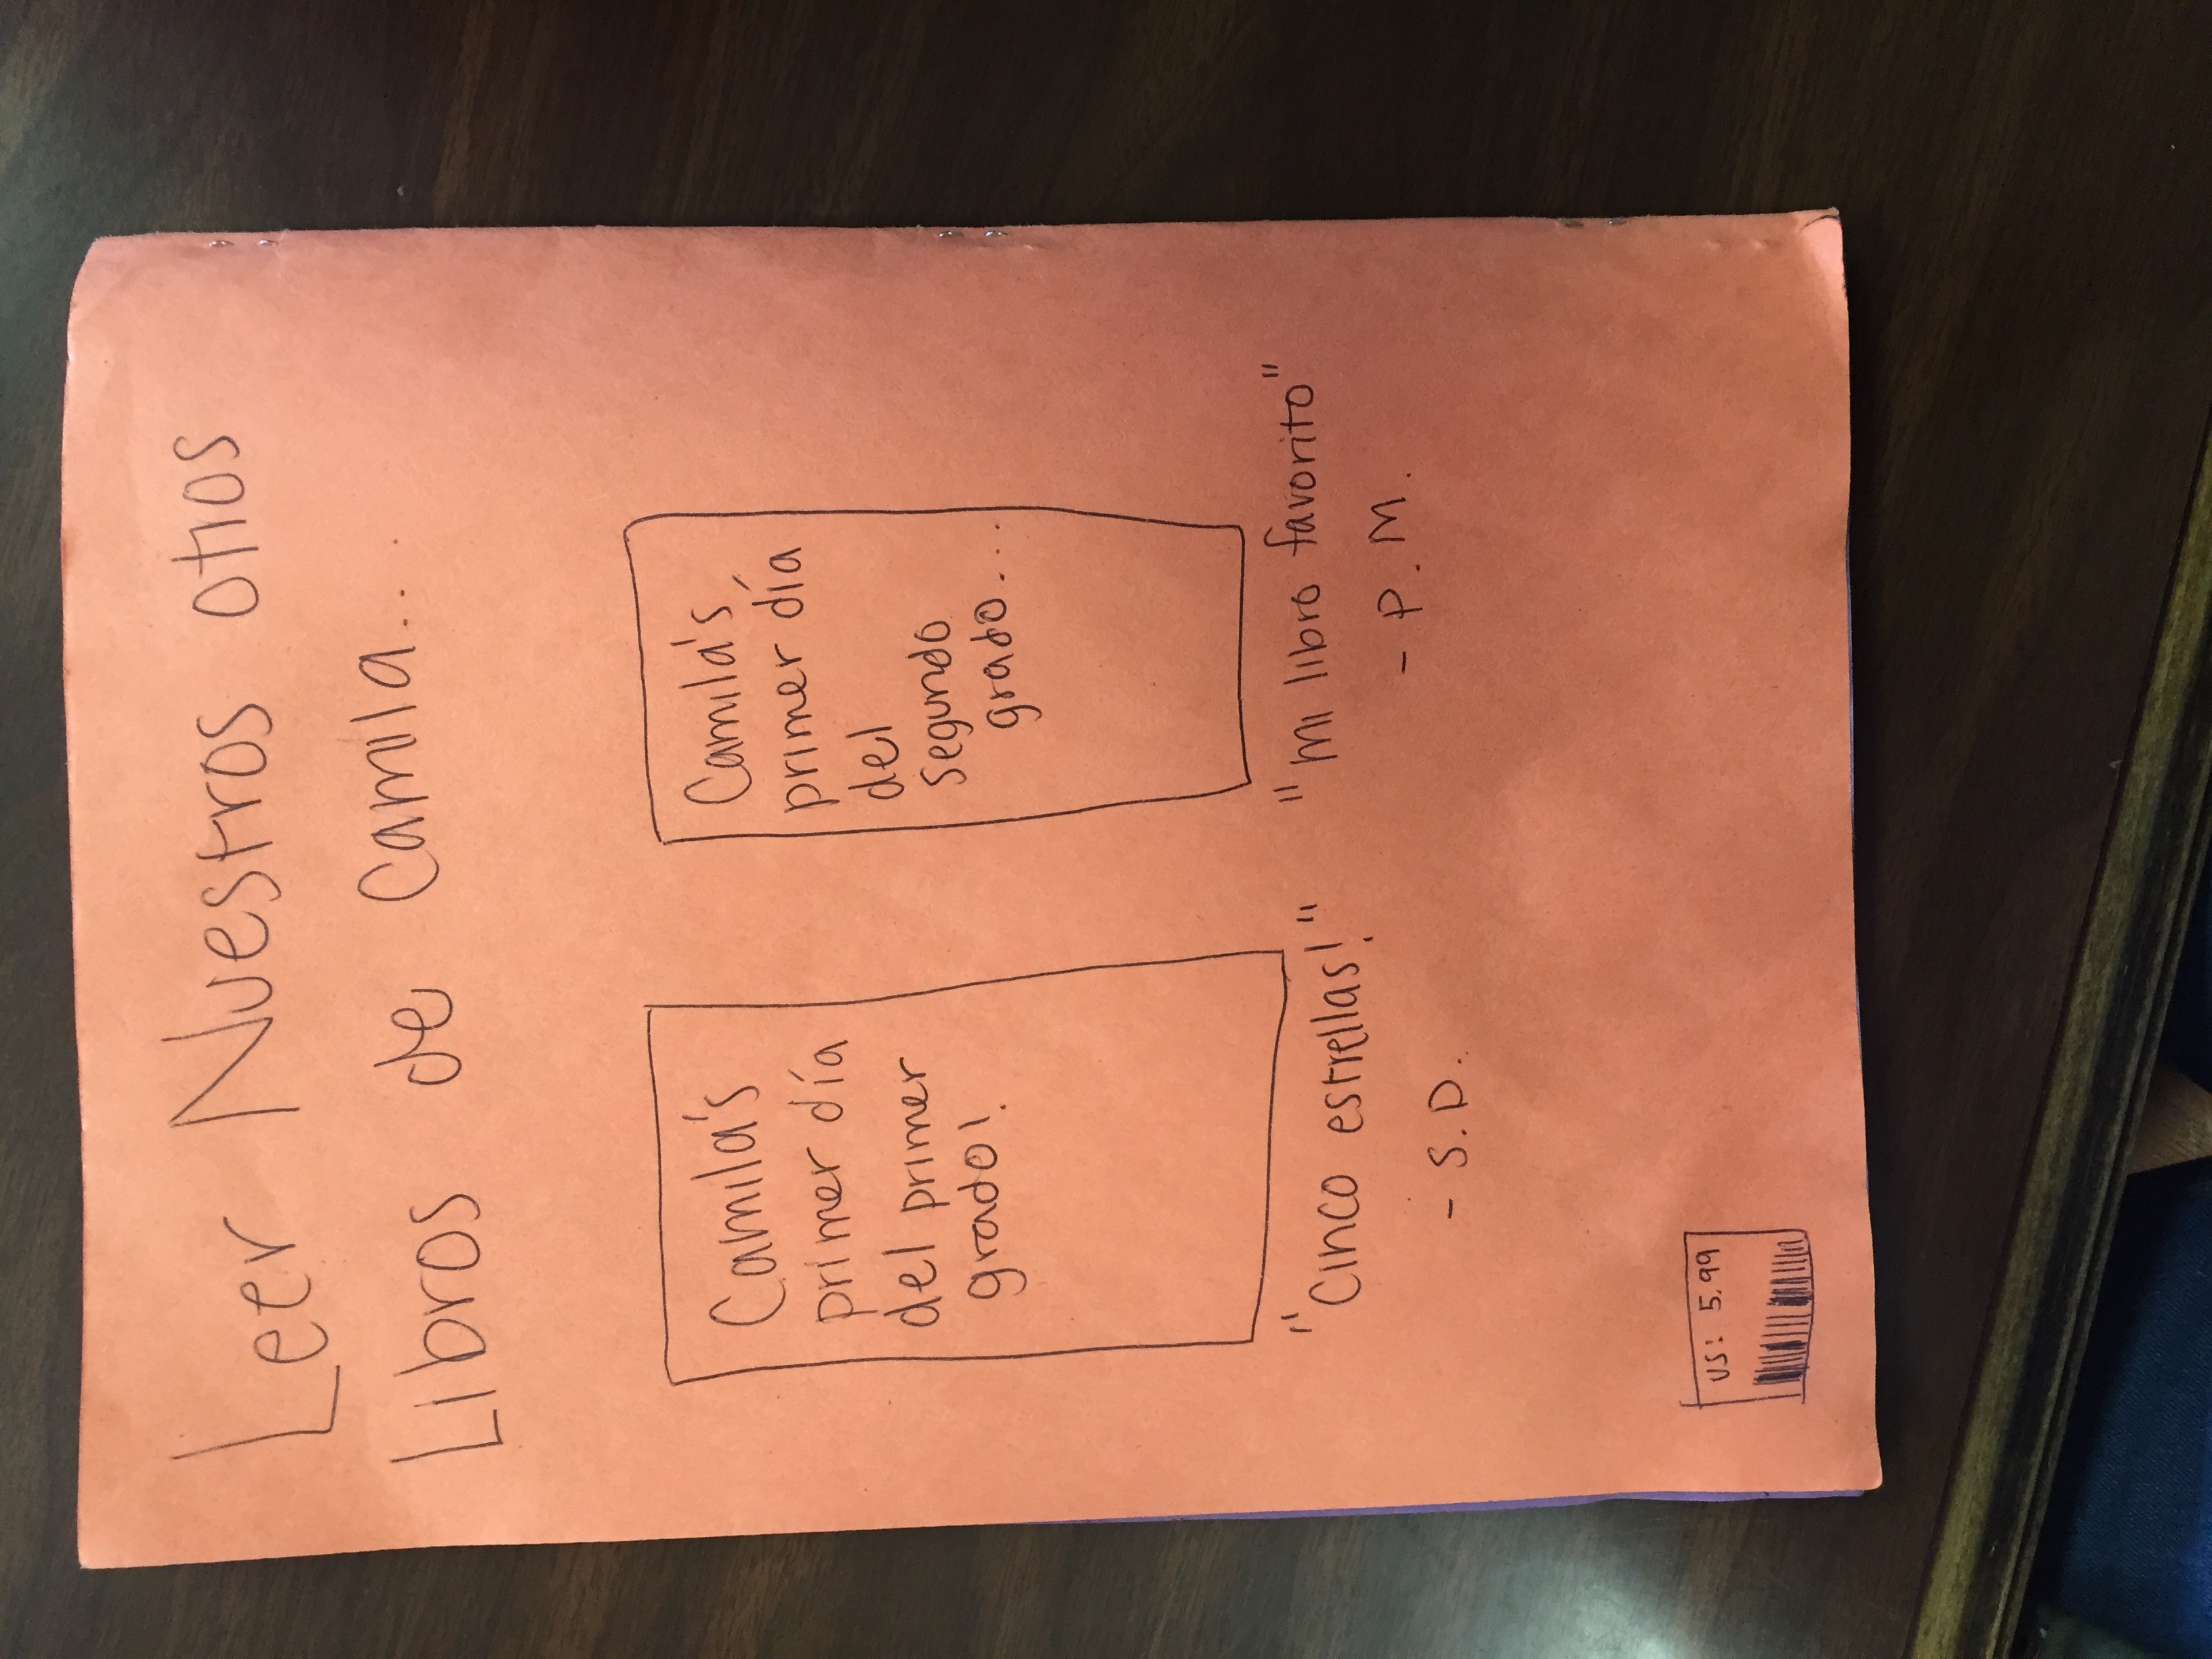 Leer Nuestros otros
Libros de Camila...
Camila's
primer día
del primer
grado!
"Cinco estrellas!"
- S.D.
Camila's
primer día
del
segundo
grado...
"mi libro favorito"
- P.M.
US: 5.99